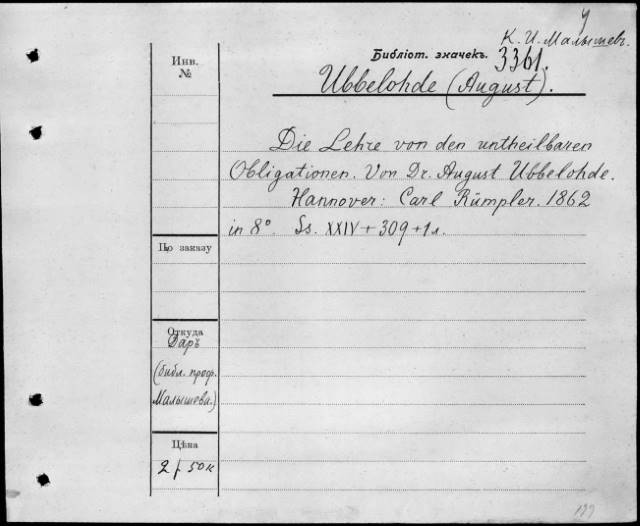 У
К. И. Малышевъ.
Библіот. значекъ.
3361.
Инв.
№
Ubbelohde (August).
Die Lehre von den untheilbaren
Obligationen. Von Dr. August Ubbelohde.
Hannover: Carl Rümpler. 1862
in 8°. Ss. XXIV + 309 + 1 л.
По заказу
Откуда
Даръ
(библ. проф.
Малышева.)
Цѣна
2 р 50 к